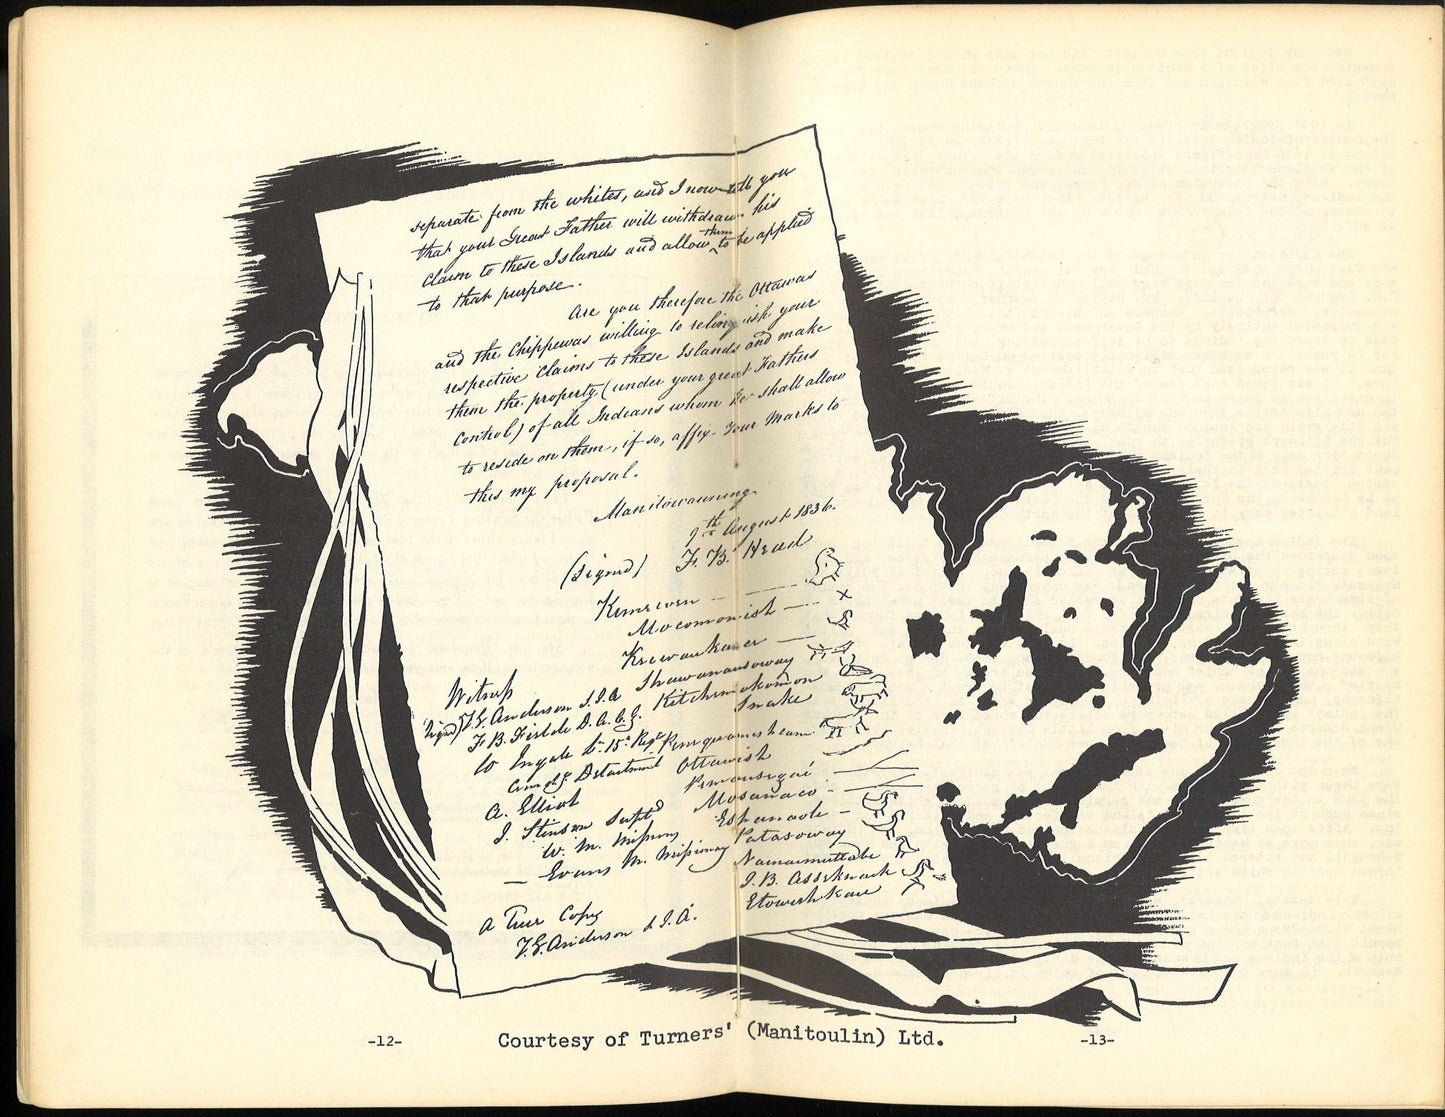 separate from the whites, and I now tell you
that your Great Father will withdraw his
Claim to these Islands and allow them to be applied
to that purpose.
Are you therefore the Ottawas
and the Chippewas willing to relinquish your
respective Claims to these Islands and make
them the property (under your great Fathers
Control) of all Indians whom he shall allow
to reside on them, if so, affix Your Marks to
this my proposal.
Manitowauning
9th August 1836.
(Signed) F. B. Head
Mocomonish
Kitchemokomon
Snake
Ottawish
Mosaniko
Espaniole
Patasoway
Naimawmuttabe
J. B. Assekinack
Witness
T.G. Anderson S.I.A
A. Elliot
J. Stinson Supt
W. M. Missions
Evans M. Missionary
A True Copy
T.G. Anderson S.I.A.
-12-
Courtesy of Turners' (Manitoulin) Ltd.
-13-